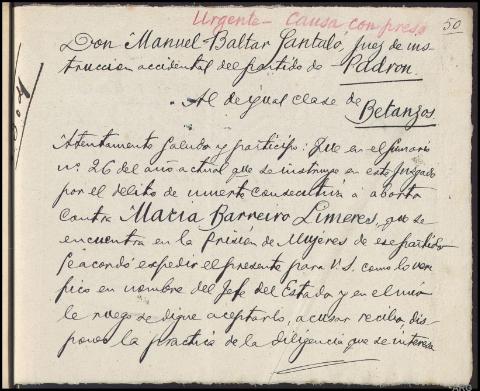 Urgente - Causa con preso
50
Don Manuel Baltar Santaló, juez de ins-
truccion accidental del partido de Padron.
Al de igual clase de Betanzos
Atentamente saludo y participo: Que en el sumario
nº 26 del año actual que se instruye en este Juzgado
por el delito de muerte consecutiva á aborto
contra Maria Barreiro Limeres, que se
encuentra en la Prisión de Mujeres de ese partido
se acordó expedir el presente para V.S. como lo veri-
fico en nombre del Jefe del Estado y en el mio
le ruego se digne aceptarlo, acusar recibo, dis-
poner la practica de la diligencia que se interesa